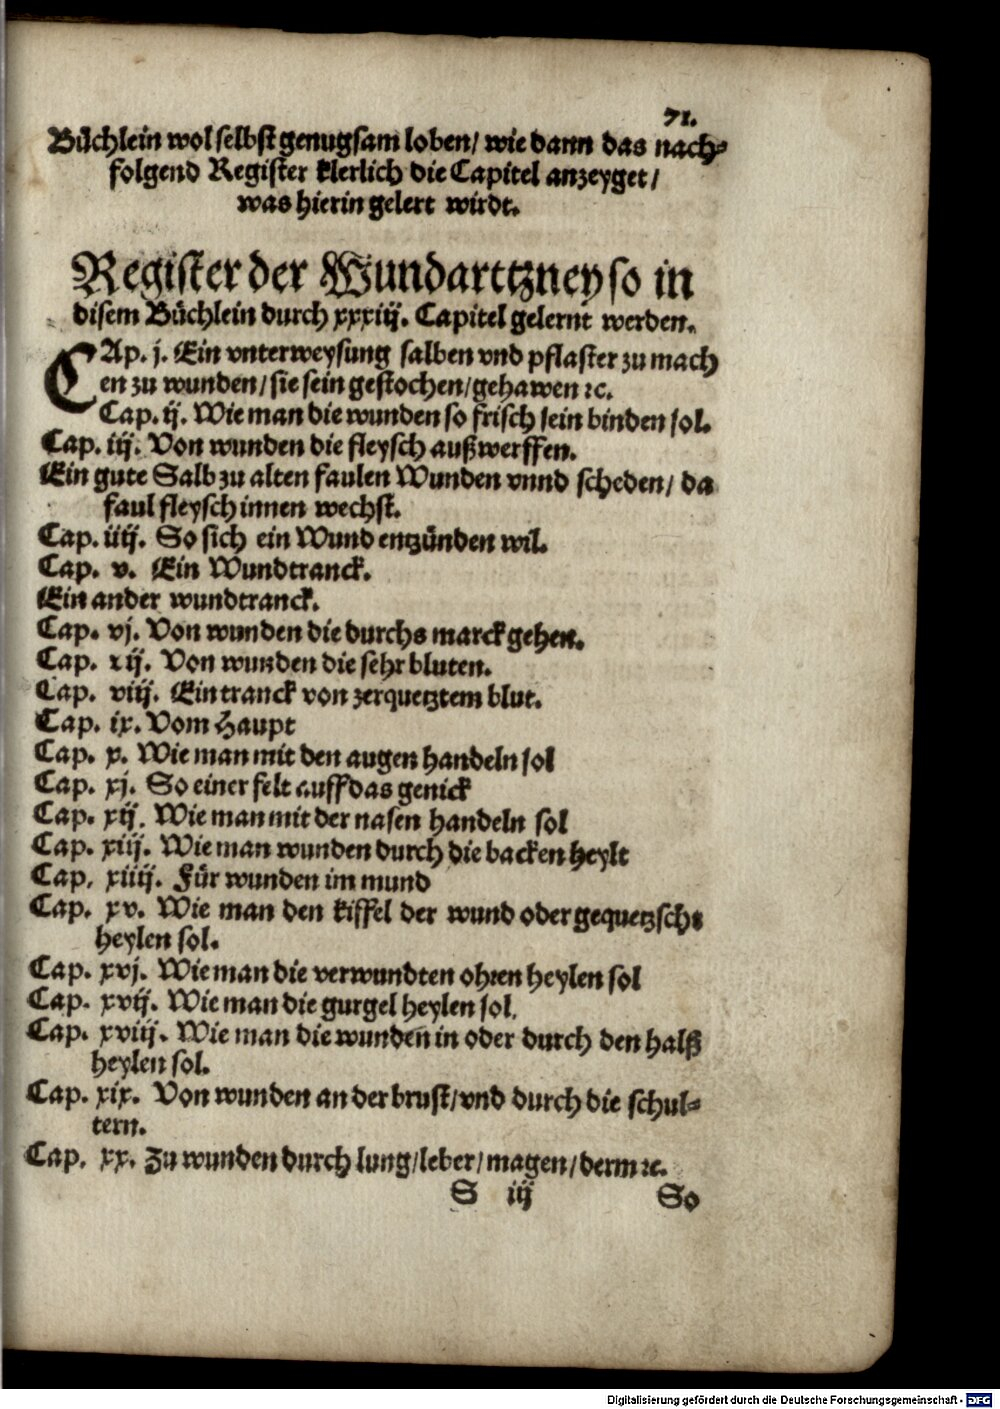 71.
Büchlein wol selbst genugsam loben/ wie dann das nach⸗
folgend Register klerlich die Capitel anzeyget/
was hierin gelert wirdt.
Register der Wundarttzney so in
disem Büchlein durch xxxiij. Capitel gelernt werden.
CAp. j. Ein vnterweysung salben vnd pflaster zu mach
en zu wunden/ sie sein gestochen/ gehawen ꝛc.
Cap. ij. Wie man die wunden so frisch sein binden sol.
Cap. iij. Von wunden die fleysch außwerffen.
Ein gute Salb zu alten faulen Wunden vnnd scheden/ da
faul fleysch innen wechst.
Cap. iiij. So sich ein Wund entzünden wil.
Cap. v. Ein Wundtranck.
Ein ander wundtranck.
Cap. vj. Von wunden die durchs marck gehen.
Cap. vij. Von wunden die sehr bluten.
Cap. viij. Ein tranck von zerquetztem blut.
Cap. ix. Vom Haupt
Cap. x. Wie man mit den augen handeln sol
Cap. xj. So einer felt auff das genick
Cap. xij. Wie man mit der nasen handeln sol
Cap. xiij. Wie man wunden durch die backen heylt
Cap. xiiij. Für wunden im mund
Cap. xv. Wie man den kiffel der wund oder gequetzscht
heylen sol.
Cap. xvj. Wie man die verwundten ohren heylen sol
Cap. xvij. Wie man die gurgel heylen sol.
Cap. xviij. Wie man die wunden in oder durch den halß
heylen sol.
Cap. xix. Von wunden an der brust/ vnd durch die schul⸗
tern.
Cap. xx. Zu wunden durch lung/ leber/ magen/ derm ꝛc.
S iij So
Digitalisierung gefördert durch die Deutsche Forschungsgemeinschaft - DFG